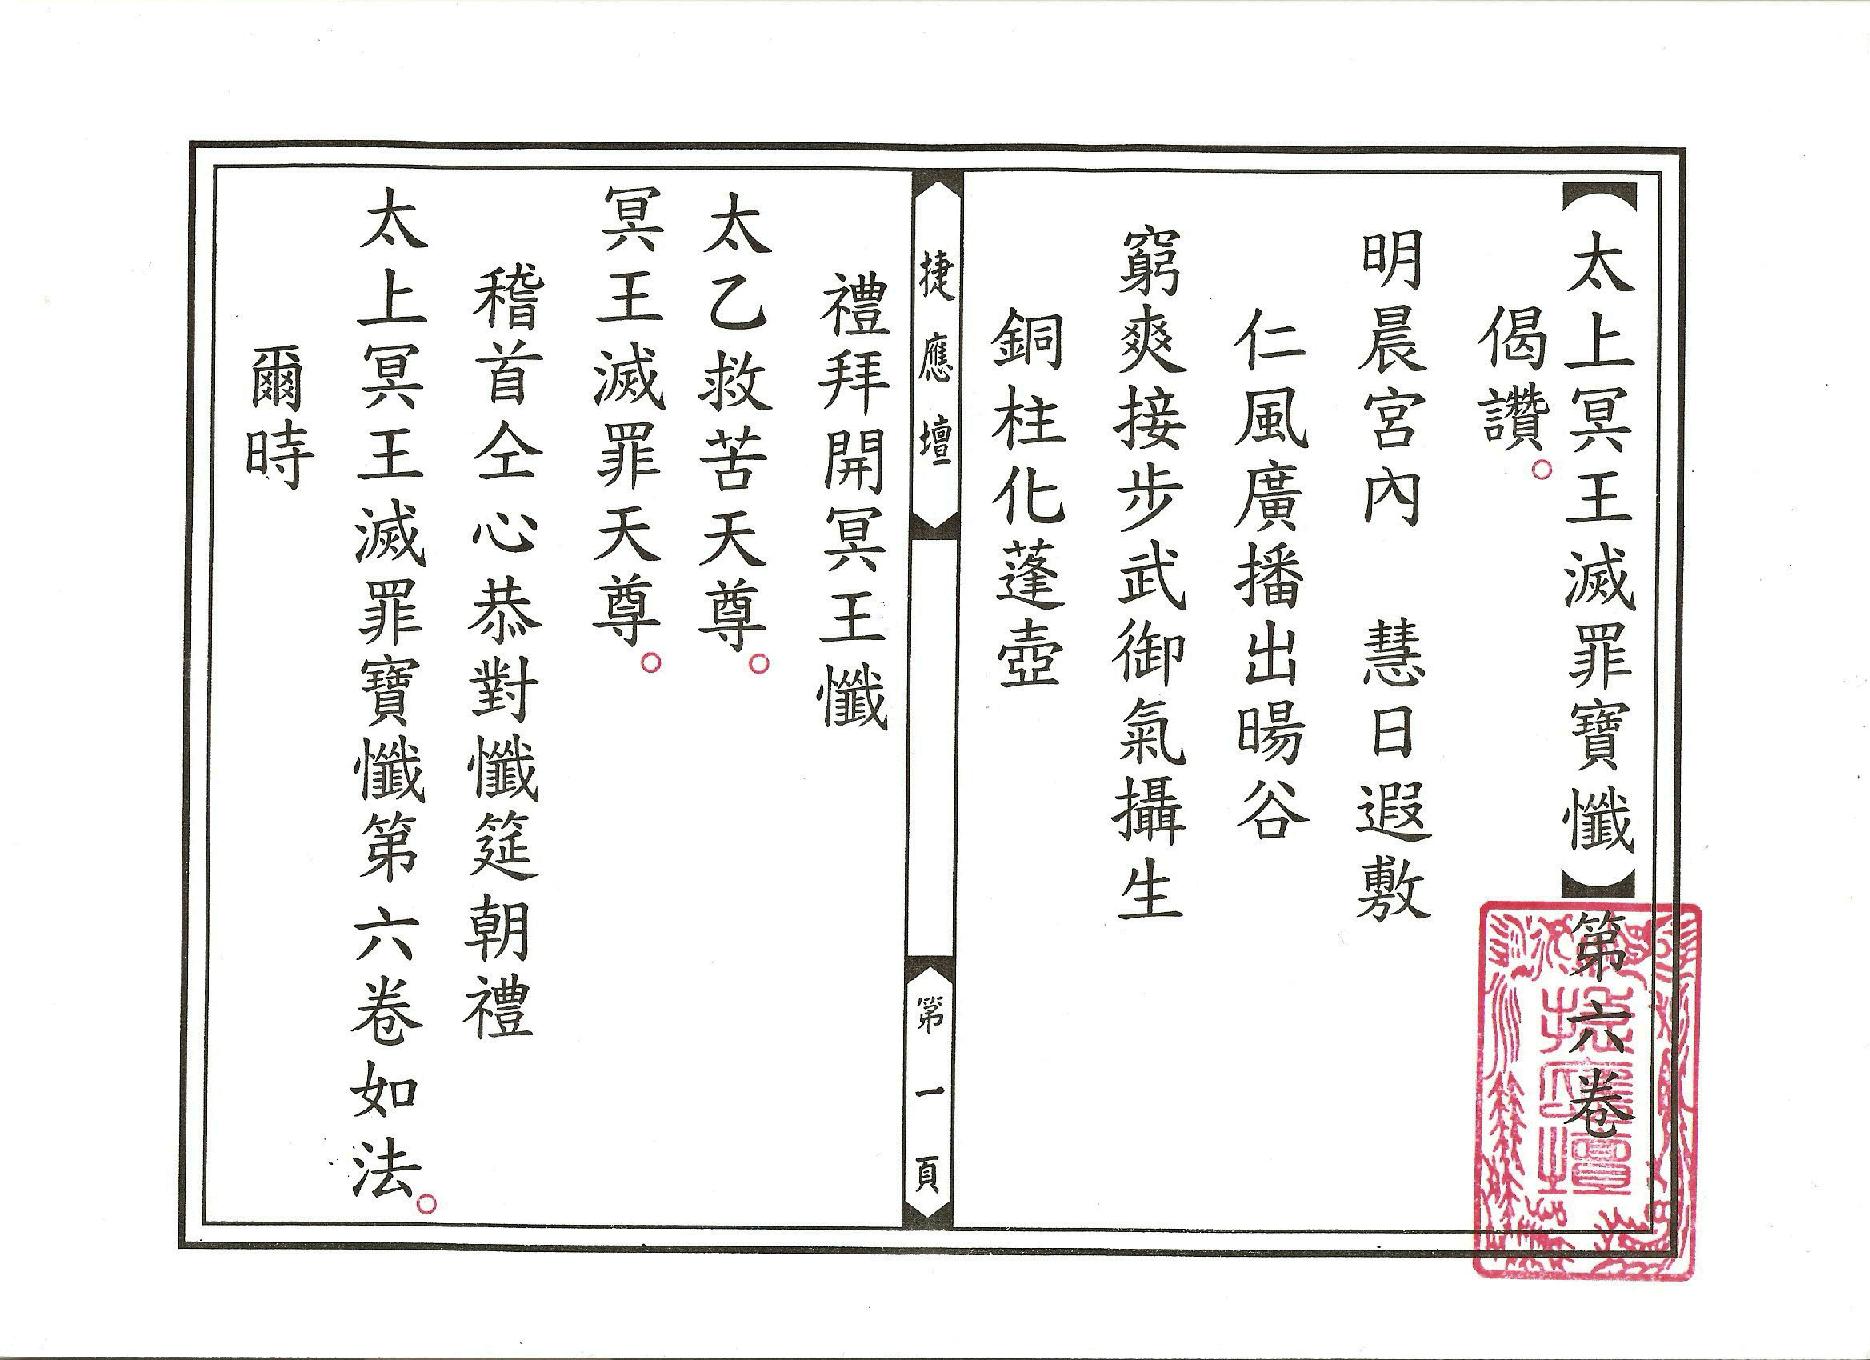 【太上冥王滅罪寶懺】第六卷
偈讚。
明晨宮內　慧日遐敷
仁風廣播出暘谷
窮爽接步武御氣攝生
銅柱化蓬壺
捷應壇
第一頁
禮拜開冥王懺
太乙救苦天尊。
冥王滅罪天尊。
稽首仝心恭對懺筵朝禮
太上冥王滅罪寶懺第六卷如法。
爾時
捷應壇